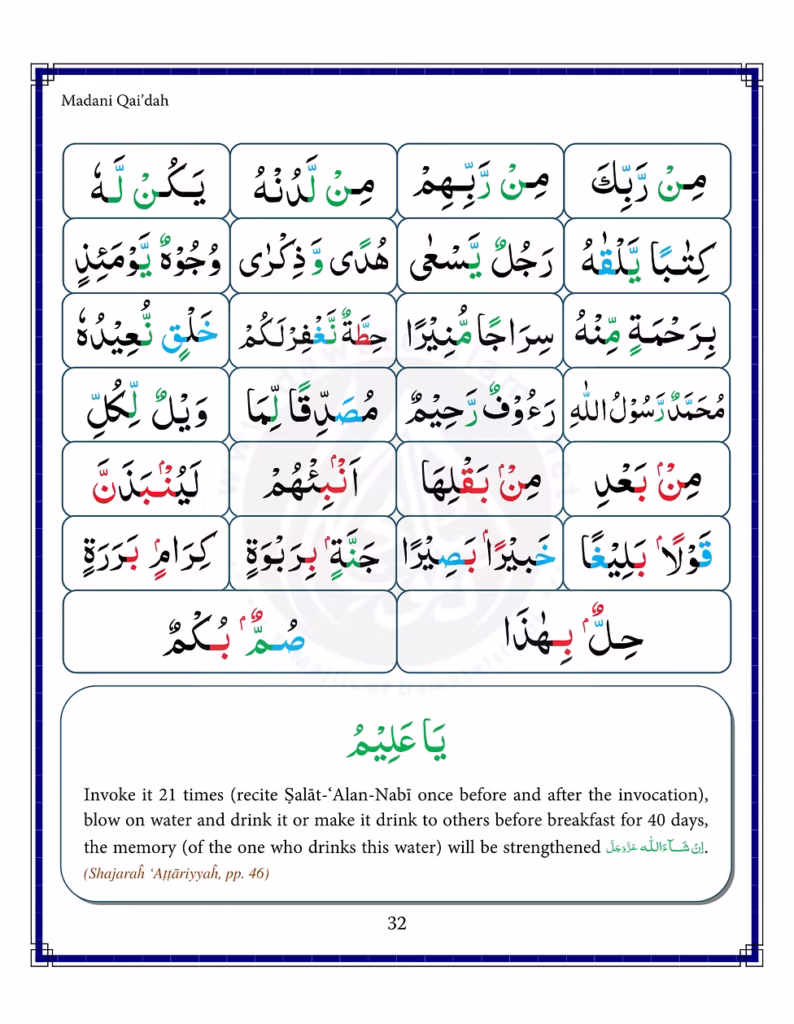 Madani Qai’dah
مِنْ رَّبِّكَ مِنْ رَّبِّهِمْ مِنْ لَّدُنْهُ يَكُنْ لَّهٗ
كِتٰبًا يَّلْقٰىهُ رَجُلٌ يَّسْعٰى هُدًى وَّذِكْرٰى وُجُوْهٌ يَّوْمَئِذٍ
بِرَحْمَةٍ مِّنْهُ سِرَاجًا مُّنِيْرًا حِطَّةٌ نَّغْفِرْلَكُمْ خَلْقٍ نُّعِيْدُهٗ
مُحَمَّدٌ رَّسُوْلُ اللّٰهِ رَءُوْفٌ رَّحِيْمٌ مُصَدِّقًا لِّمَا وَيْلٌ لِّكُلِّ
مِنْۢ بَعْدِ مِنْۢ بَقْلِهَا اَنْۢبِئْهُمْ لَيُنْۢبَذَنَّ
قَوْلًاۢ بَلِيْغًا خَبِيْرًاۢ بَصِيْرًا جَنَّةٍۭ بِرَبْوَةٍ كِرَامٍۭ بَرَرَةٍ
حِلٌّۢ بِهٰذَا صُمٌّۢ بُكْمٌ
يَا عَلِيْمُ
Invoke it 21 times (recite Ṣalāt-‘Alan-Nabī once before and after the invocation),
blow on water and drink it or make it drink to others before breakfast for 40 days,
the memory (of the one who drinks this water) will be strengthened اِنْ شَآءَاللّٰه عَزَّوَجَلَّ.
(Shajaraĥ ‘Aṭṭāriyyaĥ, pp. 46)
32